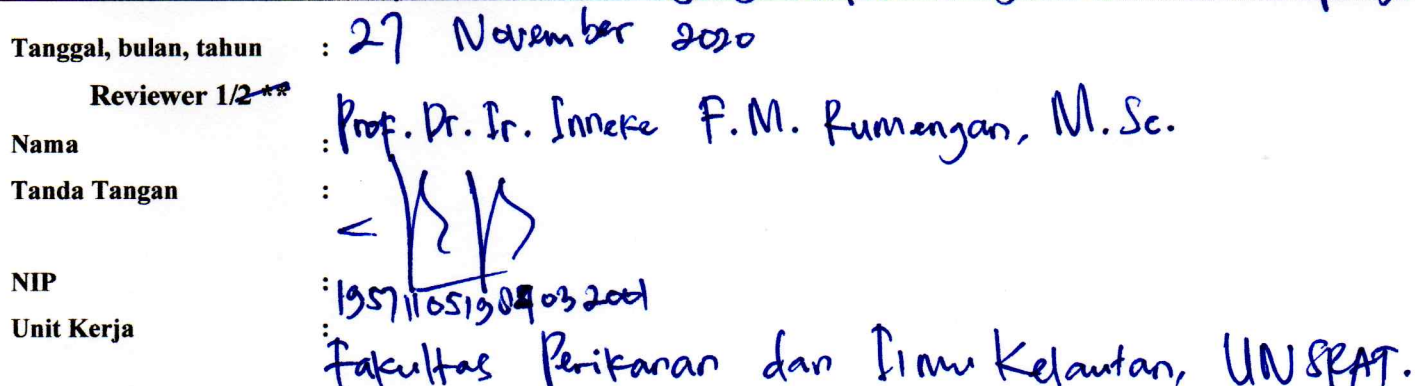 Tanggal, bulan, tahun : 27 November 2020
Reviewer 1/2 **
Nama : Prof. Dr. Ir. Inneke F.M. Rumengan, M.Sc.
Tanda Tangan :
NIP :
Unit Kerja : Fakultas Perikanan dan Ilmu Kelautan, UNSRAT.